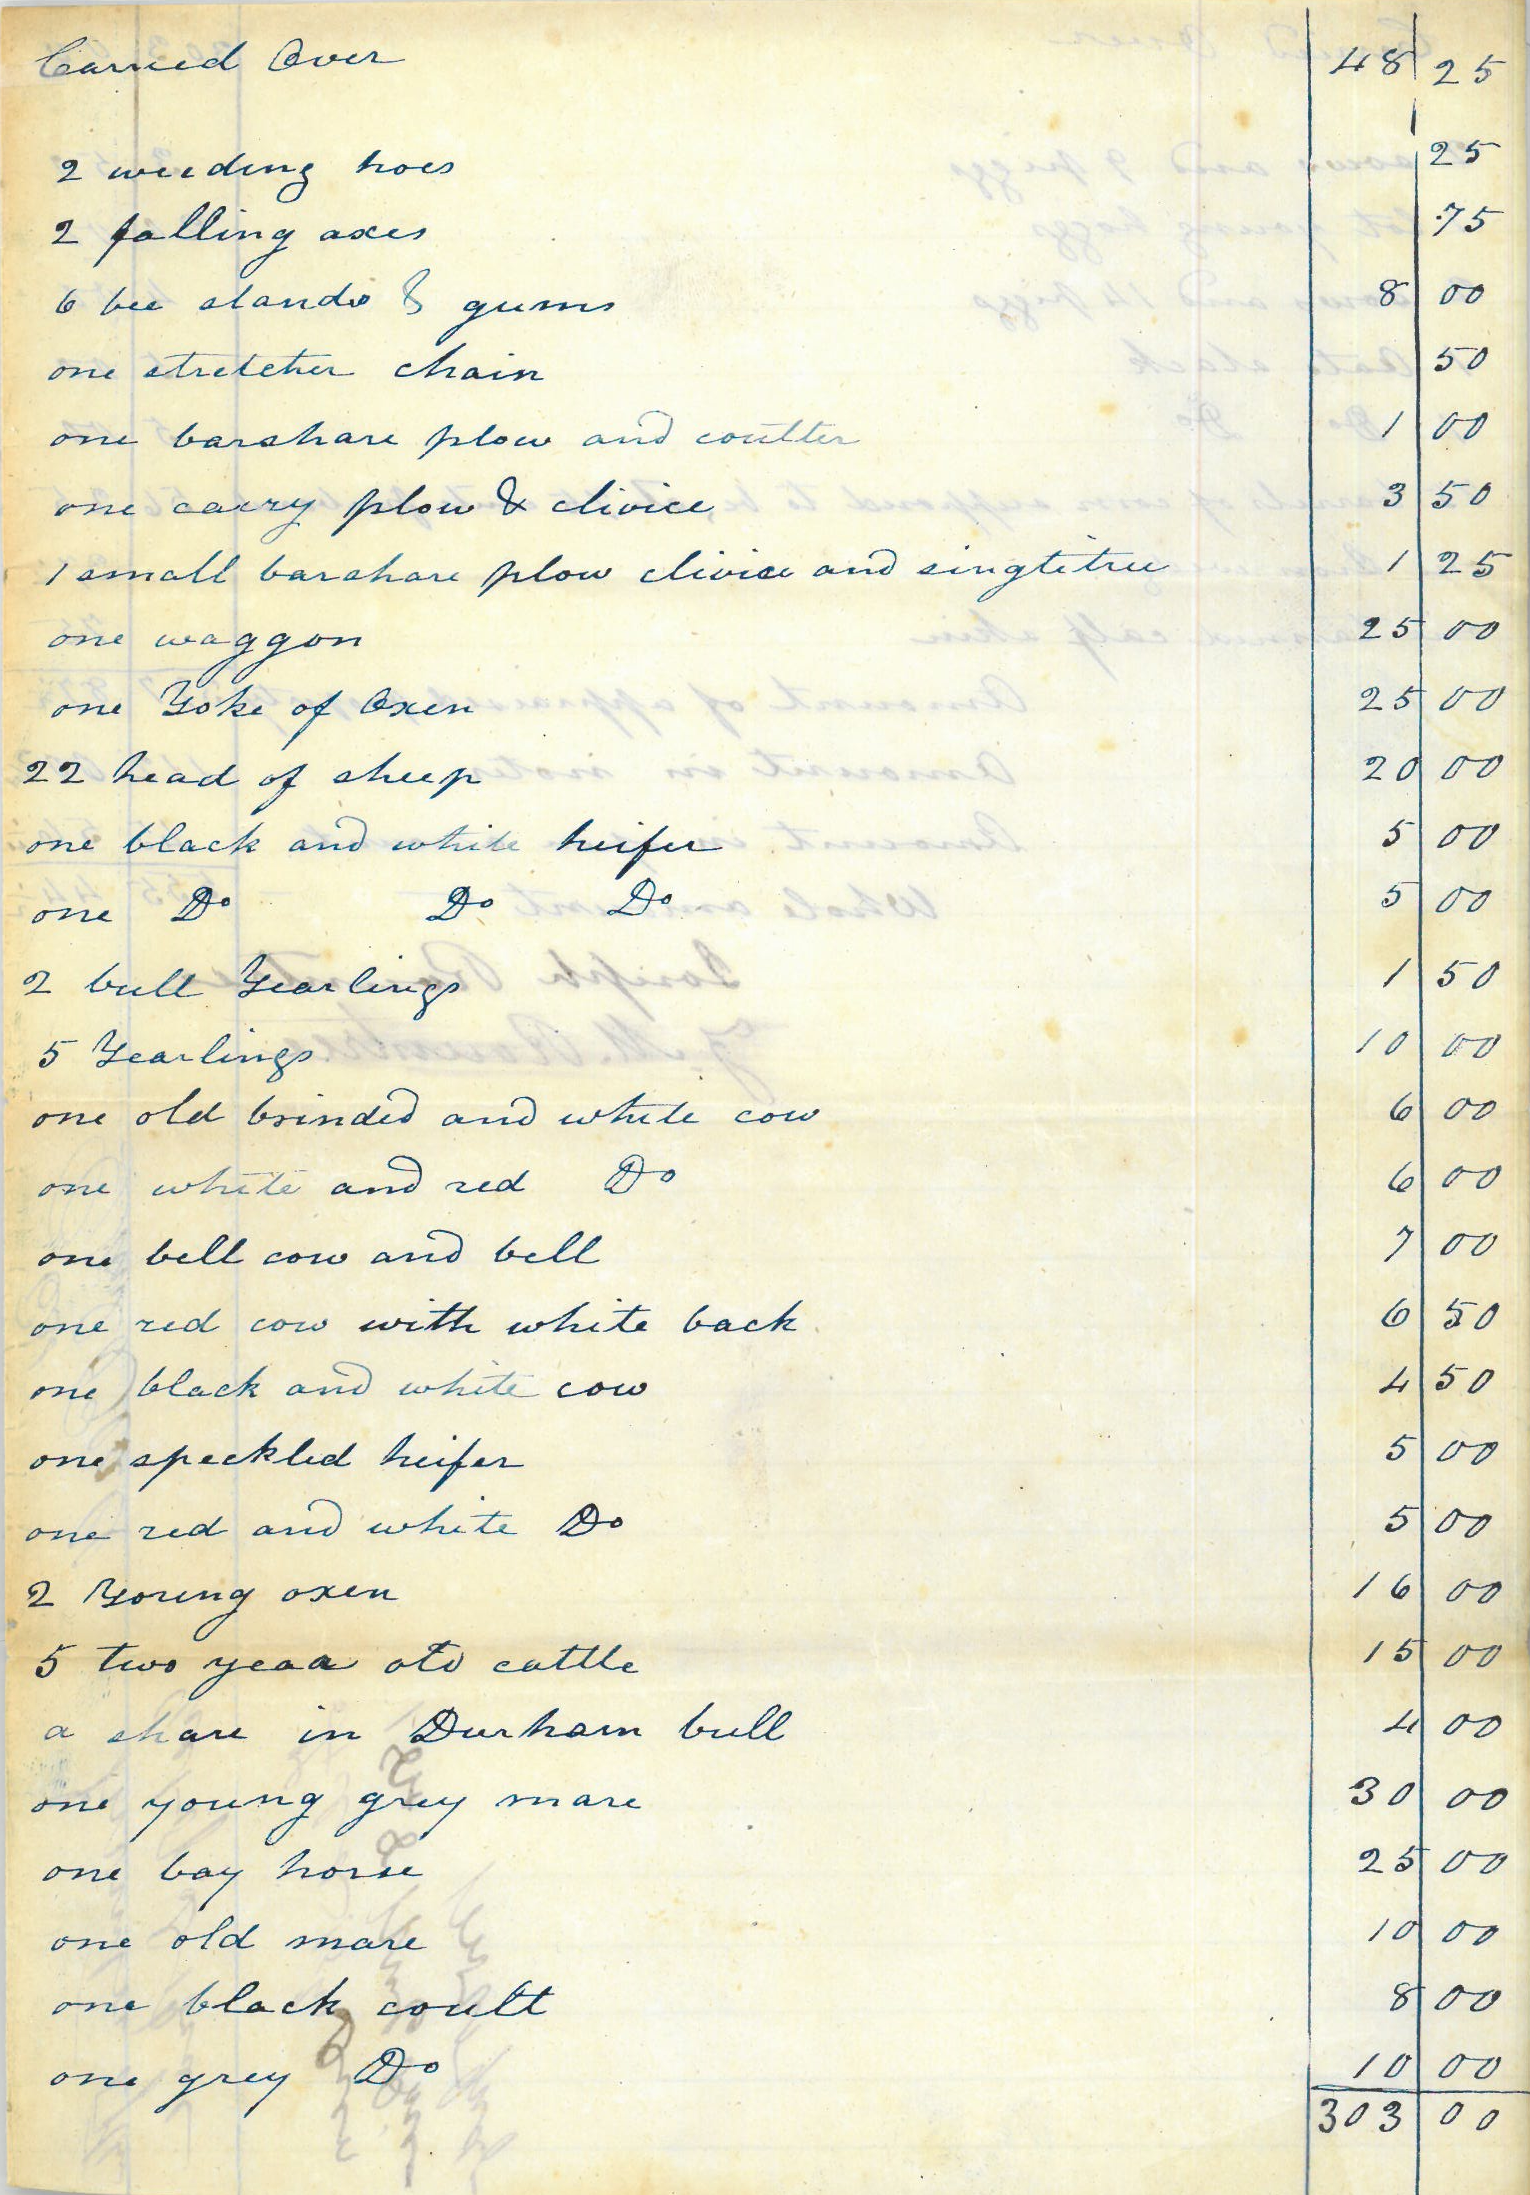 Carried Over 48 25
2 weeding hoes 25
2 falling axes 75
6 bee stands & gums 8 00
one stretcher chain 50
one barshare plow and coulter 1 00
one cary plow & clivice 3 50
1 small barshare plow clivice and singletree 1 25
one waggon 25 00
one Yoke of Oxen 25 00
22 head of sheep 20 00
one black and white heifer 5 00
one Do Do Do 5 00
2 bull Yearlings 1 50
5 Yearlings 10 00
one old brinded and white cow 6 00
one white and red Do 6 00
one bell cow and bell 7 00
one red cow with white back 6 50
one black and white cow 4 50
one speckled heifer 5 00
one red and white Do 5 00
2 Young oxen 16 00
5 two year old cattle 15 00
a share in Durham bull 4 00
one young grey mare 30 00
one bay horse 25 00
one old mare 10 00
one black coult 8 00
one grey Do 10 00
303 00